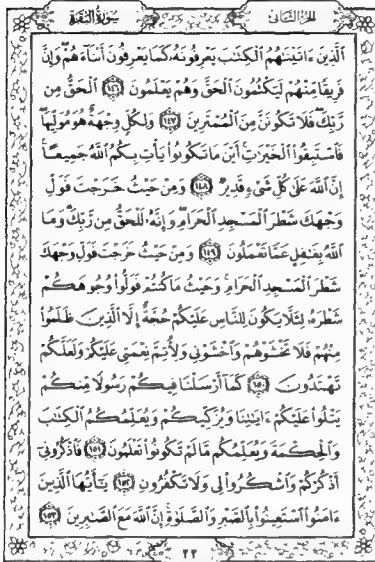 سُورَةُ البَقَرَةِ الجزء الثاني
الَّذِينَ ءَاتَيْنَٰهُمُ الْكِتَٰبَ يَعْرِفُونَهُۥ كَمَا يَعْرِفُونَ أَبْنَآءَهُمْ وَإِنَّ
فَرِيقًا مِّنْهُمْ لَيَكْتُمُونَ الْحَقَّ وَهُمْ يَعْلَمُونَ ١٤٦ الْحَقُّ مِن
رَّبِّكَ فَلَا تَكُونَنَّ مِنَ الْمُمْتَرِينَ ١٤٧ وَلِكُلٍّ وِجْهَةٌ هُوَ مُوَلِّيهَا
فَاسْتَبِقُوا الْخَيْرَٰتِ أَيْنَ مَا تَكُونُوا يَأْتِ بِكُمُ اللَّهُ جَمِيعًا
إِنَّ اللَّهَ عَلَىٰ كُلِّ شَىْءٍ قَدِيرٌ ١٤٨ وَمِنْ حَيْثُ خَرَجْتَ فَوَلِّ
وَجْهَكَ شَطْرَ الْمَسْجِدِ الْحَرَامِ وَإِنَّهُۥ لَلْحَقُّ مِن رَّبِّكَ وَمَا
اللَّهُ بِغَٰفِلٍ عَمَّا تَعْمَلُونَ ١٤٩ وَمِنْ حَيْثُ خَرَجْتَ فَوَلِّ وَجْهَكَ
شَطْرَ الْمَسْجِدِ الْحَرَامِ وَحَيْثُ مَا كُنتُمْ فَوَلُّوا وُجُوهَكُمْ
شَطْرَهُۥ لِئَلَّا يَكُونَ لِلنَّاسِ عَلَيْكُمْ حُجَّةٌ إِلَّا الَّذِينَ ظَلَمُوا
مِنْهُمْ فَلَا تَخْشَوْهُمْ وَاخْشَوْنِى وَلِأُتِمَّ نِعْمَتِى عَلَيْكُمْ وَلَعَلَّكُمْ
تَهْتَدُونَ ١٥٠ كَمَآ أَرْسَلْنَا فِيكُمْ رَسُولًا مِّنكُمْ
يَتْلُوا عَلَيْكُمْ ءَايَٰتِنَا وَيُزَكِّيكُمْ وَيُعَلِّمُكُمُ الْكِتَٰبَ
وَالْحِكْمَةَ وَيُعَلِّمُكُم مَّا لَمْ تَكُونُوا تَعْلَمُونَ ١٥١ فَاذْكُرُونِىٓ
أَذْكُرْكُمْ وَاشْكُرُوا لِى وَلَا تَكْفُرُونِ ١٥٢ يَٰٓأَيُّهَا الَّذِينَ
ءَامَنُوا اسْتَعِينُوا بِالصَّبْرِ وَالصَّلَوٰةِ إِنَّ اللَّهَ مَعَ الصَّٰبِرِينَ ١٥٣
٢٣